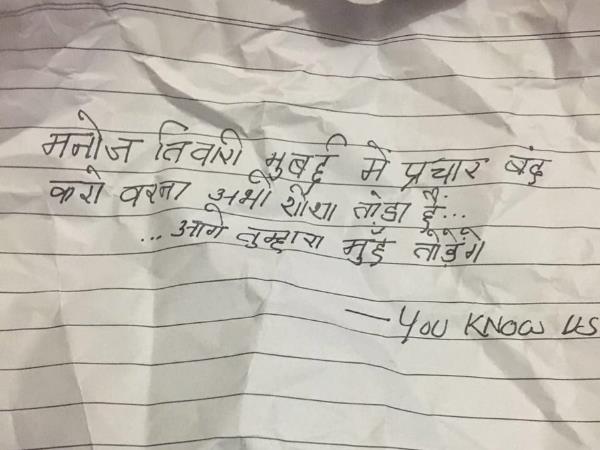 मनोज तिवारी मुबई में प्रचार बंद
करो वरना अभी शीशा तोडा है...
...आगे तुम्हारा मुहँ तोड़ेंगे
— YOU KNOW US